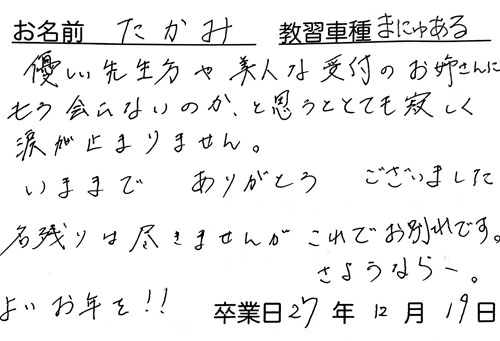 お名前 たかみ 教習車種 まにゅある
優しい先生方や美人な受付のお姉さんに
もう会えないのか、と思うととても寂しく
涙が止まりません。
いままで ありがとう ございました
名残りは尽きませんが これでお別れです。
さようならー。
よいお年を!! 卒業日27年12月19日